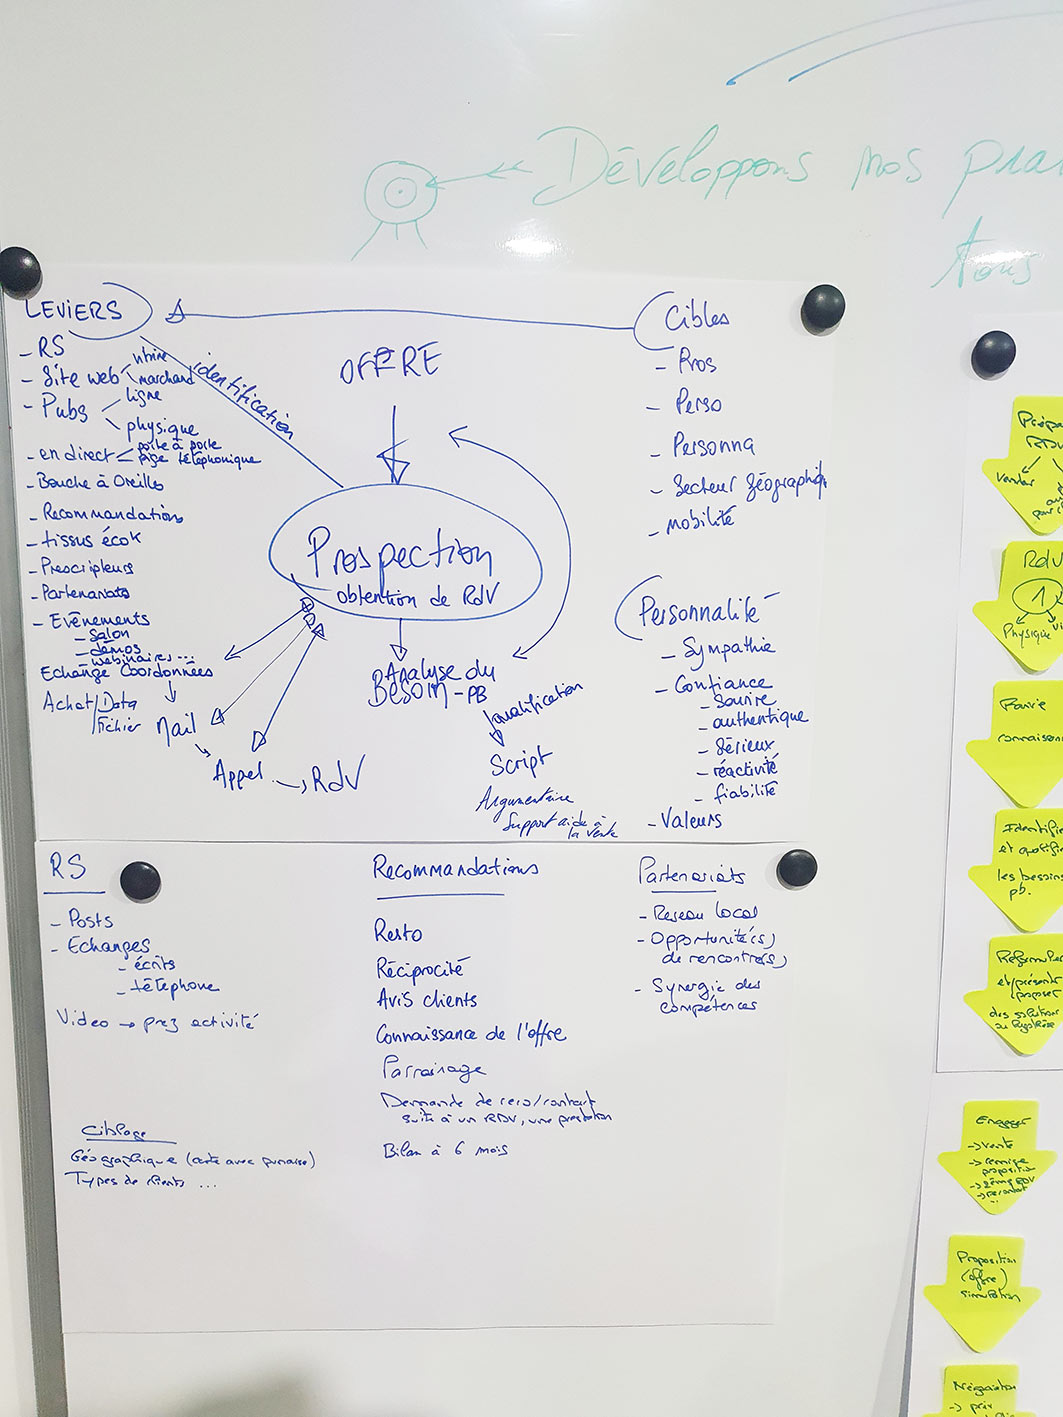 Développons nos
Tous
LEVIERS
- RS
- Site web
vitrine
marchand
- Pubs
ligne
physique
- en direct
porte à porte
téléphonique
- Bouche à Oreilles
- Recommandations
- tissus écoK
- Prescripteurs
- Partenariats
- Evênements
- Salon
- démos
- webinaires...
Echange Coordonnées
Achat/Data
Fichier
Mail
Appel
RdV
identification
OFFRE
Prospection
obtention de RdV
Analyse du
BESOIN - PB
qualification
Script
Argumentaire
Support aide à
la vente
Cibles
- Pros
- Perso
- Personna
- Secteur géographique
- mobilité
Personnalité
- Sympathie
- Confiance
- Sourire
- authentique
- Sérieux
- réactivité
- fiabilité
- Valeurs
RS
- Posts
- Echanges
- écrits
- téléphone
Video → prez activité
Ciblage
Géographique (carte avec punaise)
Types de clients ...
Recommandations
Resto
Réciprocité
Avis clients
Connaissance de l'offre
Parrainage
Demande de reco/contact
suite à un RDV, une prestation
Bilan à 6 mois
Partenariats
- Reseau local
- Opportunité(s)
de rencontre(s)
- Synergie des
compétences
RDV
Vendre
RdV
1
Physique
les besoins
pb.
et/présente
proposer
des solutions
Engager
→ vente
→ remise
→ 2ème RDV
Proposition
(offre)
simulation
Négociation
→ prix